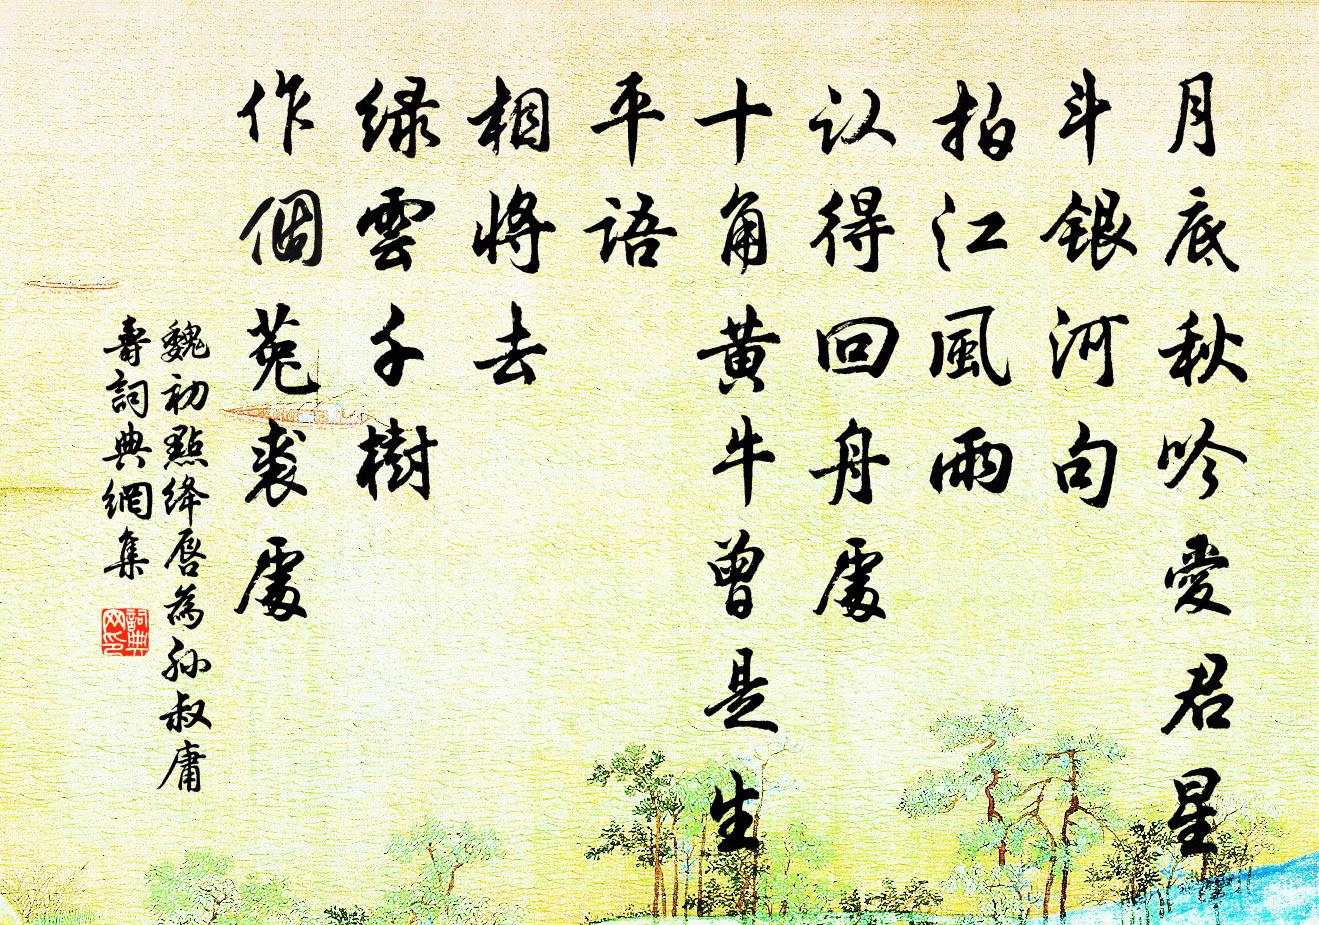 月底秋吟愛君星
斗銀河句
拍江風雨
认得回舟處
十角黃牛曾是生
平語
相將去
緑雲千樹
作個菟裘處
魏初點绛唇為孙叔庸
壽詞典網集
詞典
网印